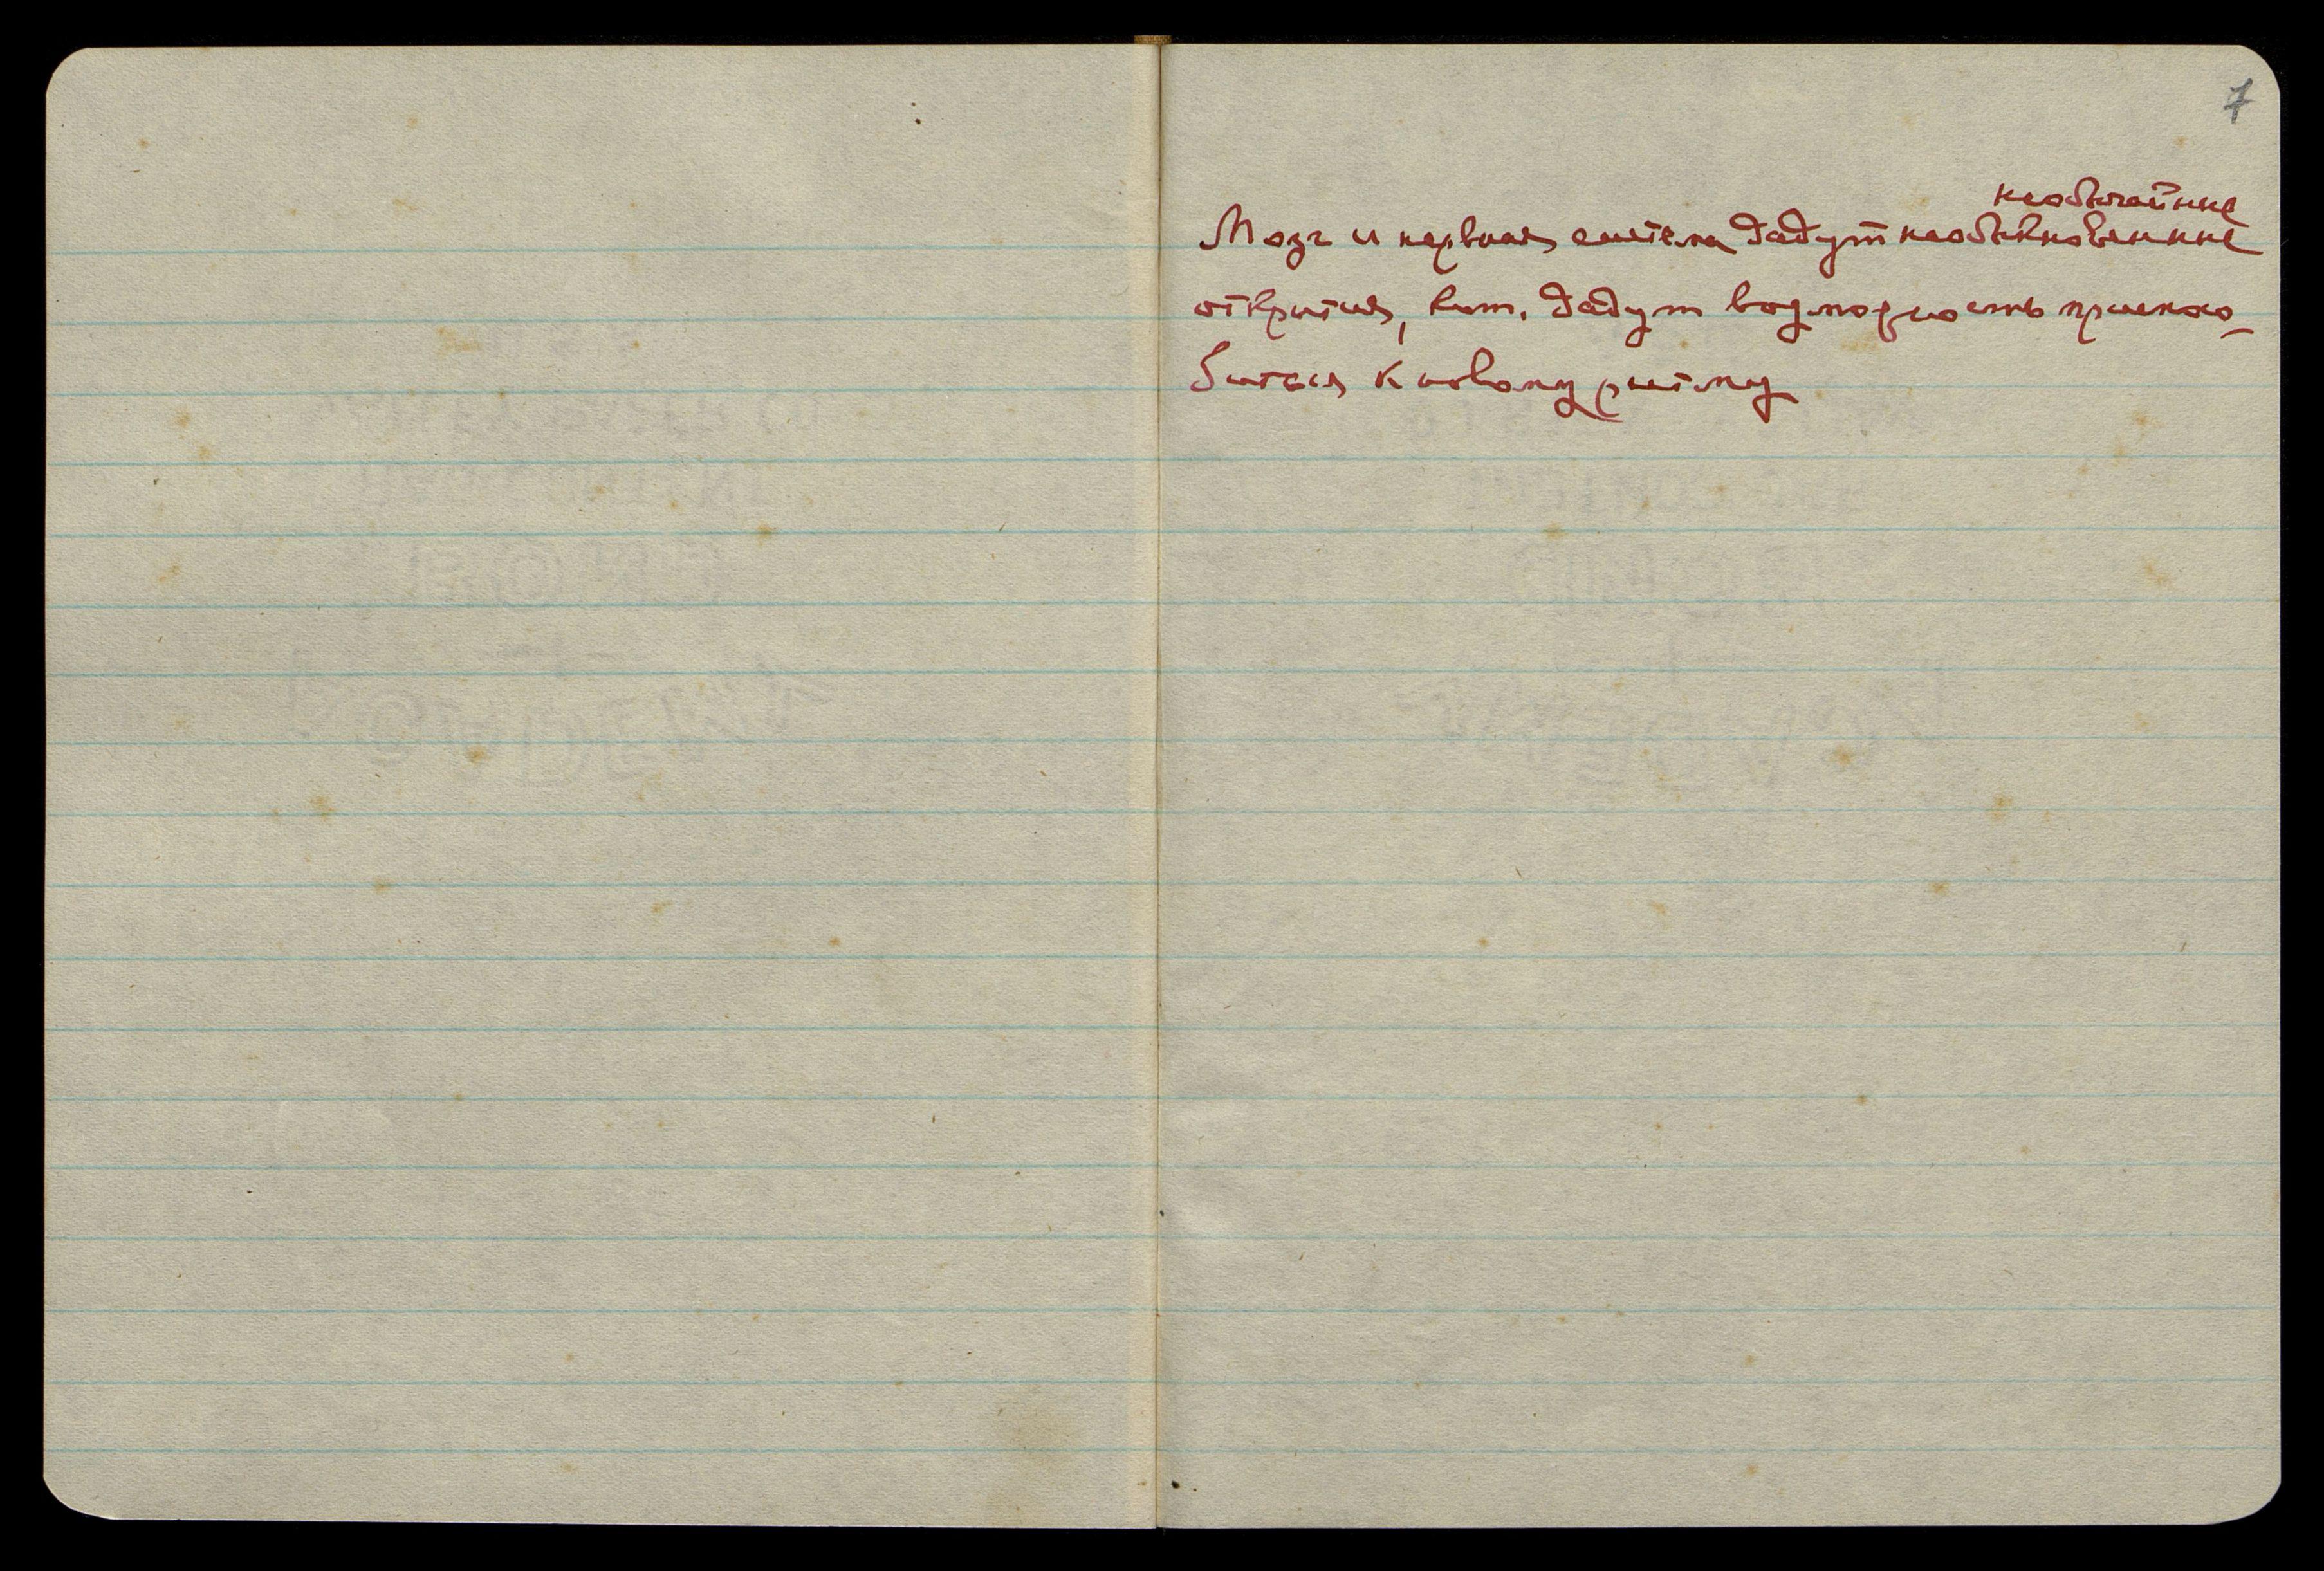 7
необычайные
Мозг и нервная система дадут необыкновенные
открытия, кот. дадут возможность приспосо-
биться к новому ритму